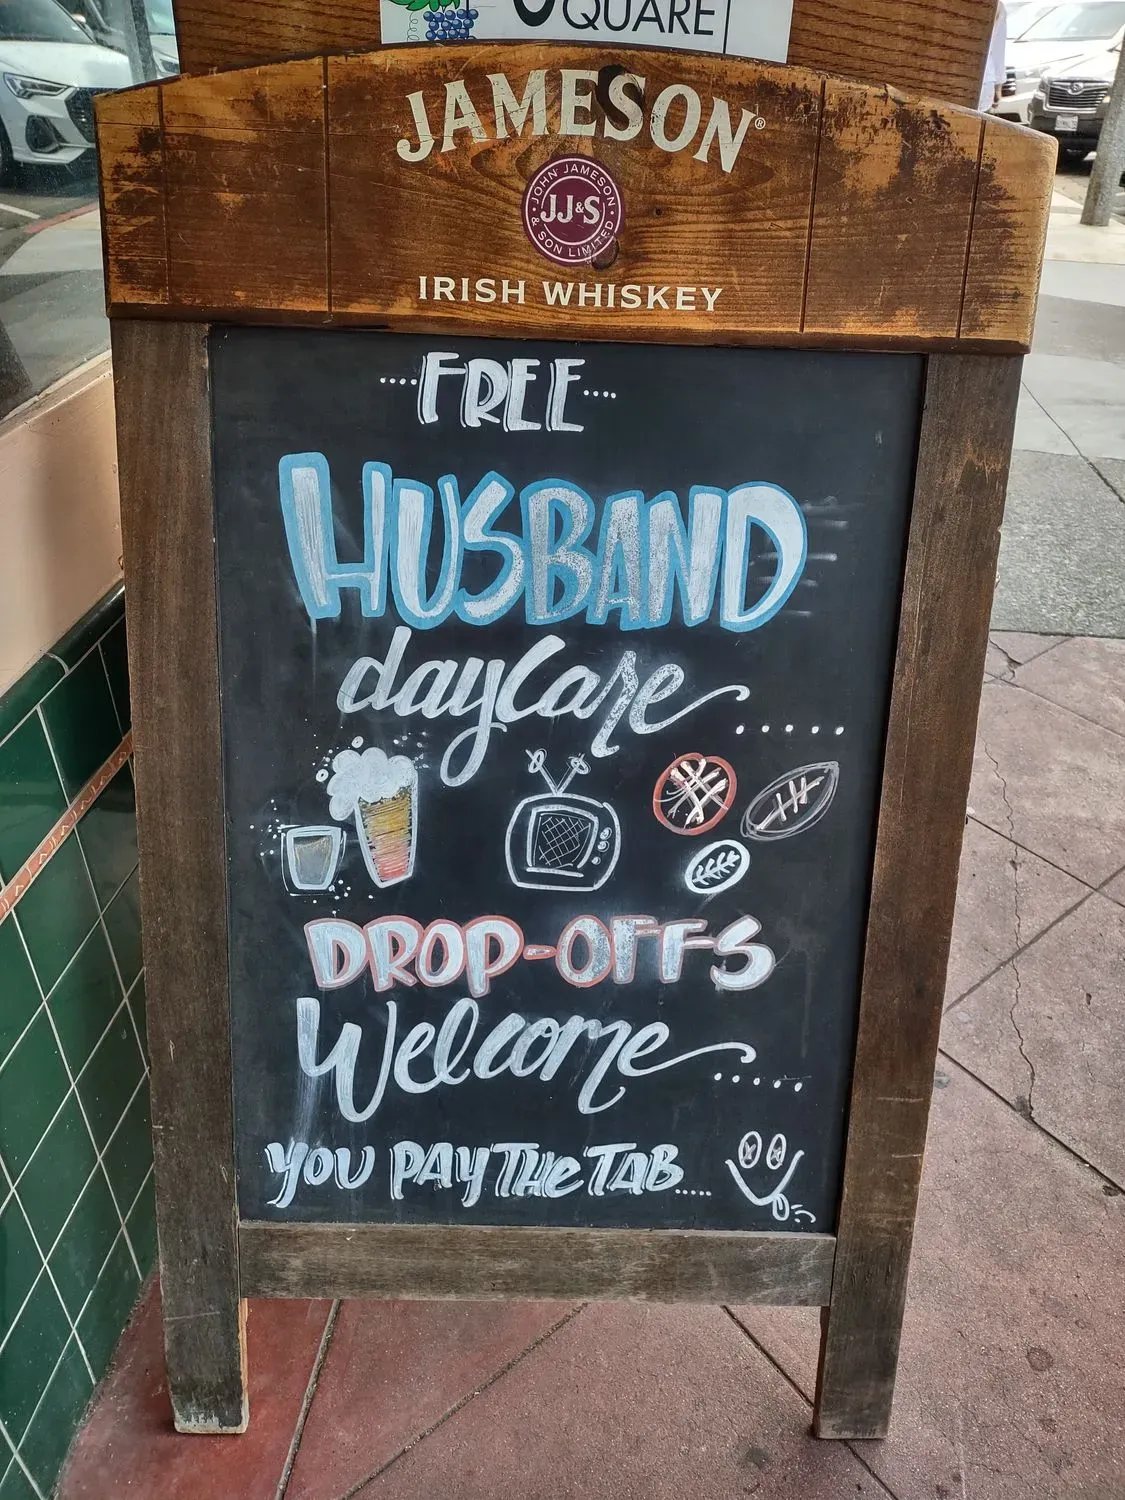 QUARE
JAMESON®
JOHN JAMESON
JJ&S
& SON LIMITED
IRISH WHISKEY
....FREE....
HUSBAND
daycare.....
DROP-OFFS
Welcome.....
YOU PAY THe TAB.....